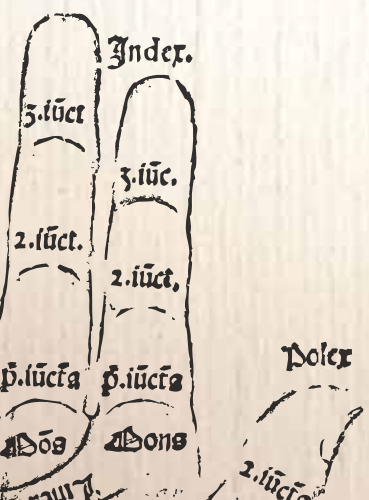 Index.
3.iūct
3.iūc.
2.iūct.
2.iūct.
Polex
p̄.iūcta
p̄.iūcta
Mōs
Mons
2.iūcta